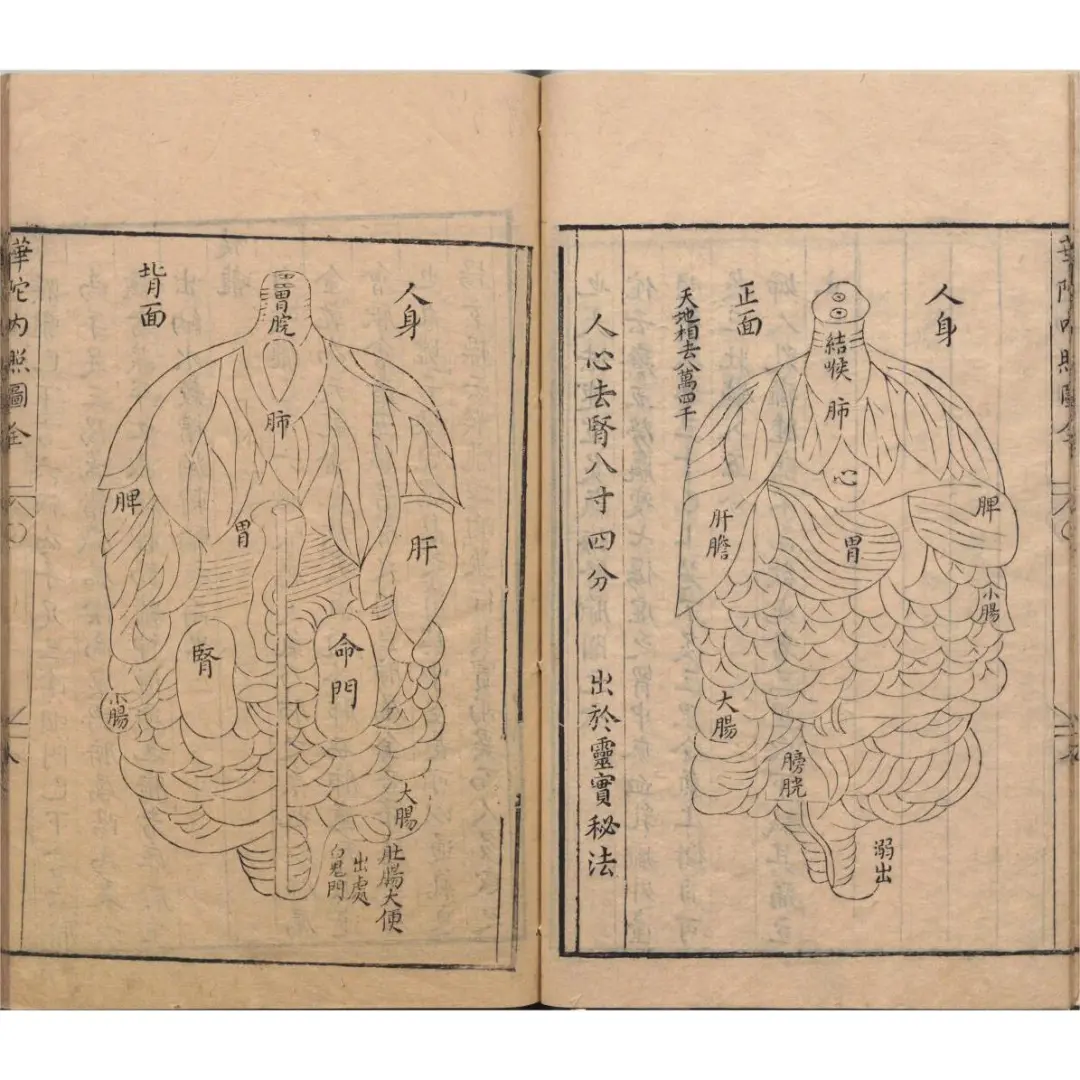 人身
正面
天地相去八萬四千
結喉
肺
心
肝膽
胃
脾
小腸
大腸
膀胱
溺出
人心去腎八寸四分
出於靈實秘法
人身
背面
胃脘
肺
脾
胃
肝
腎
命門
小腸
大腸
肚腸大便
出處
鬼門
華陀內照圖全